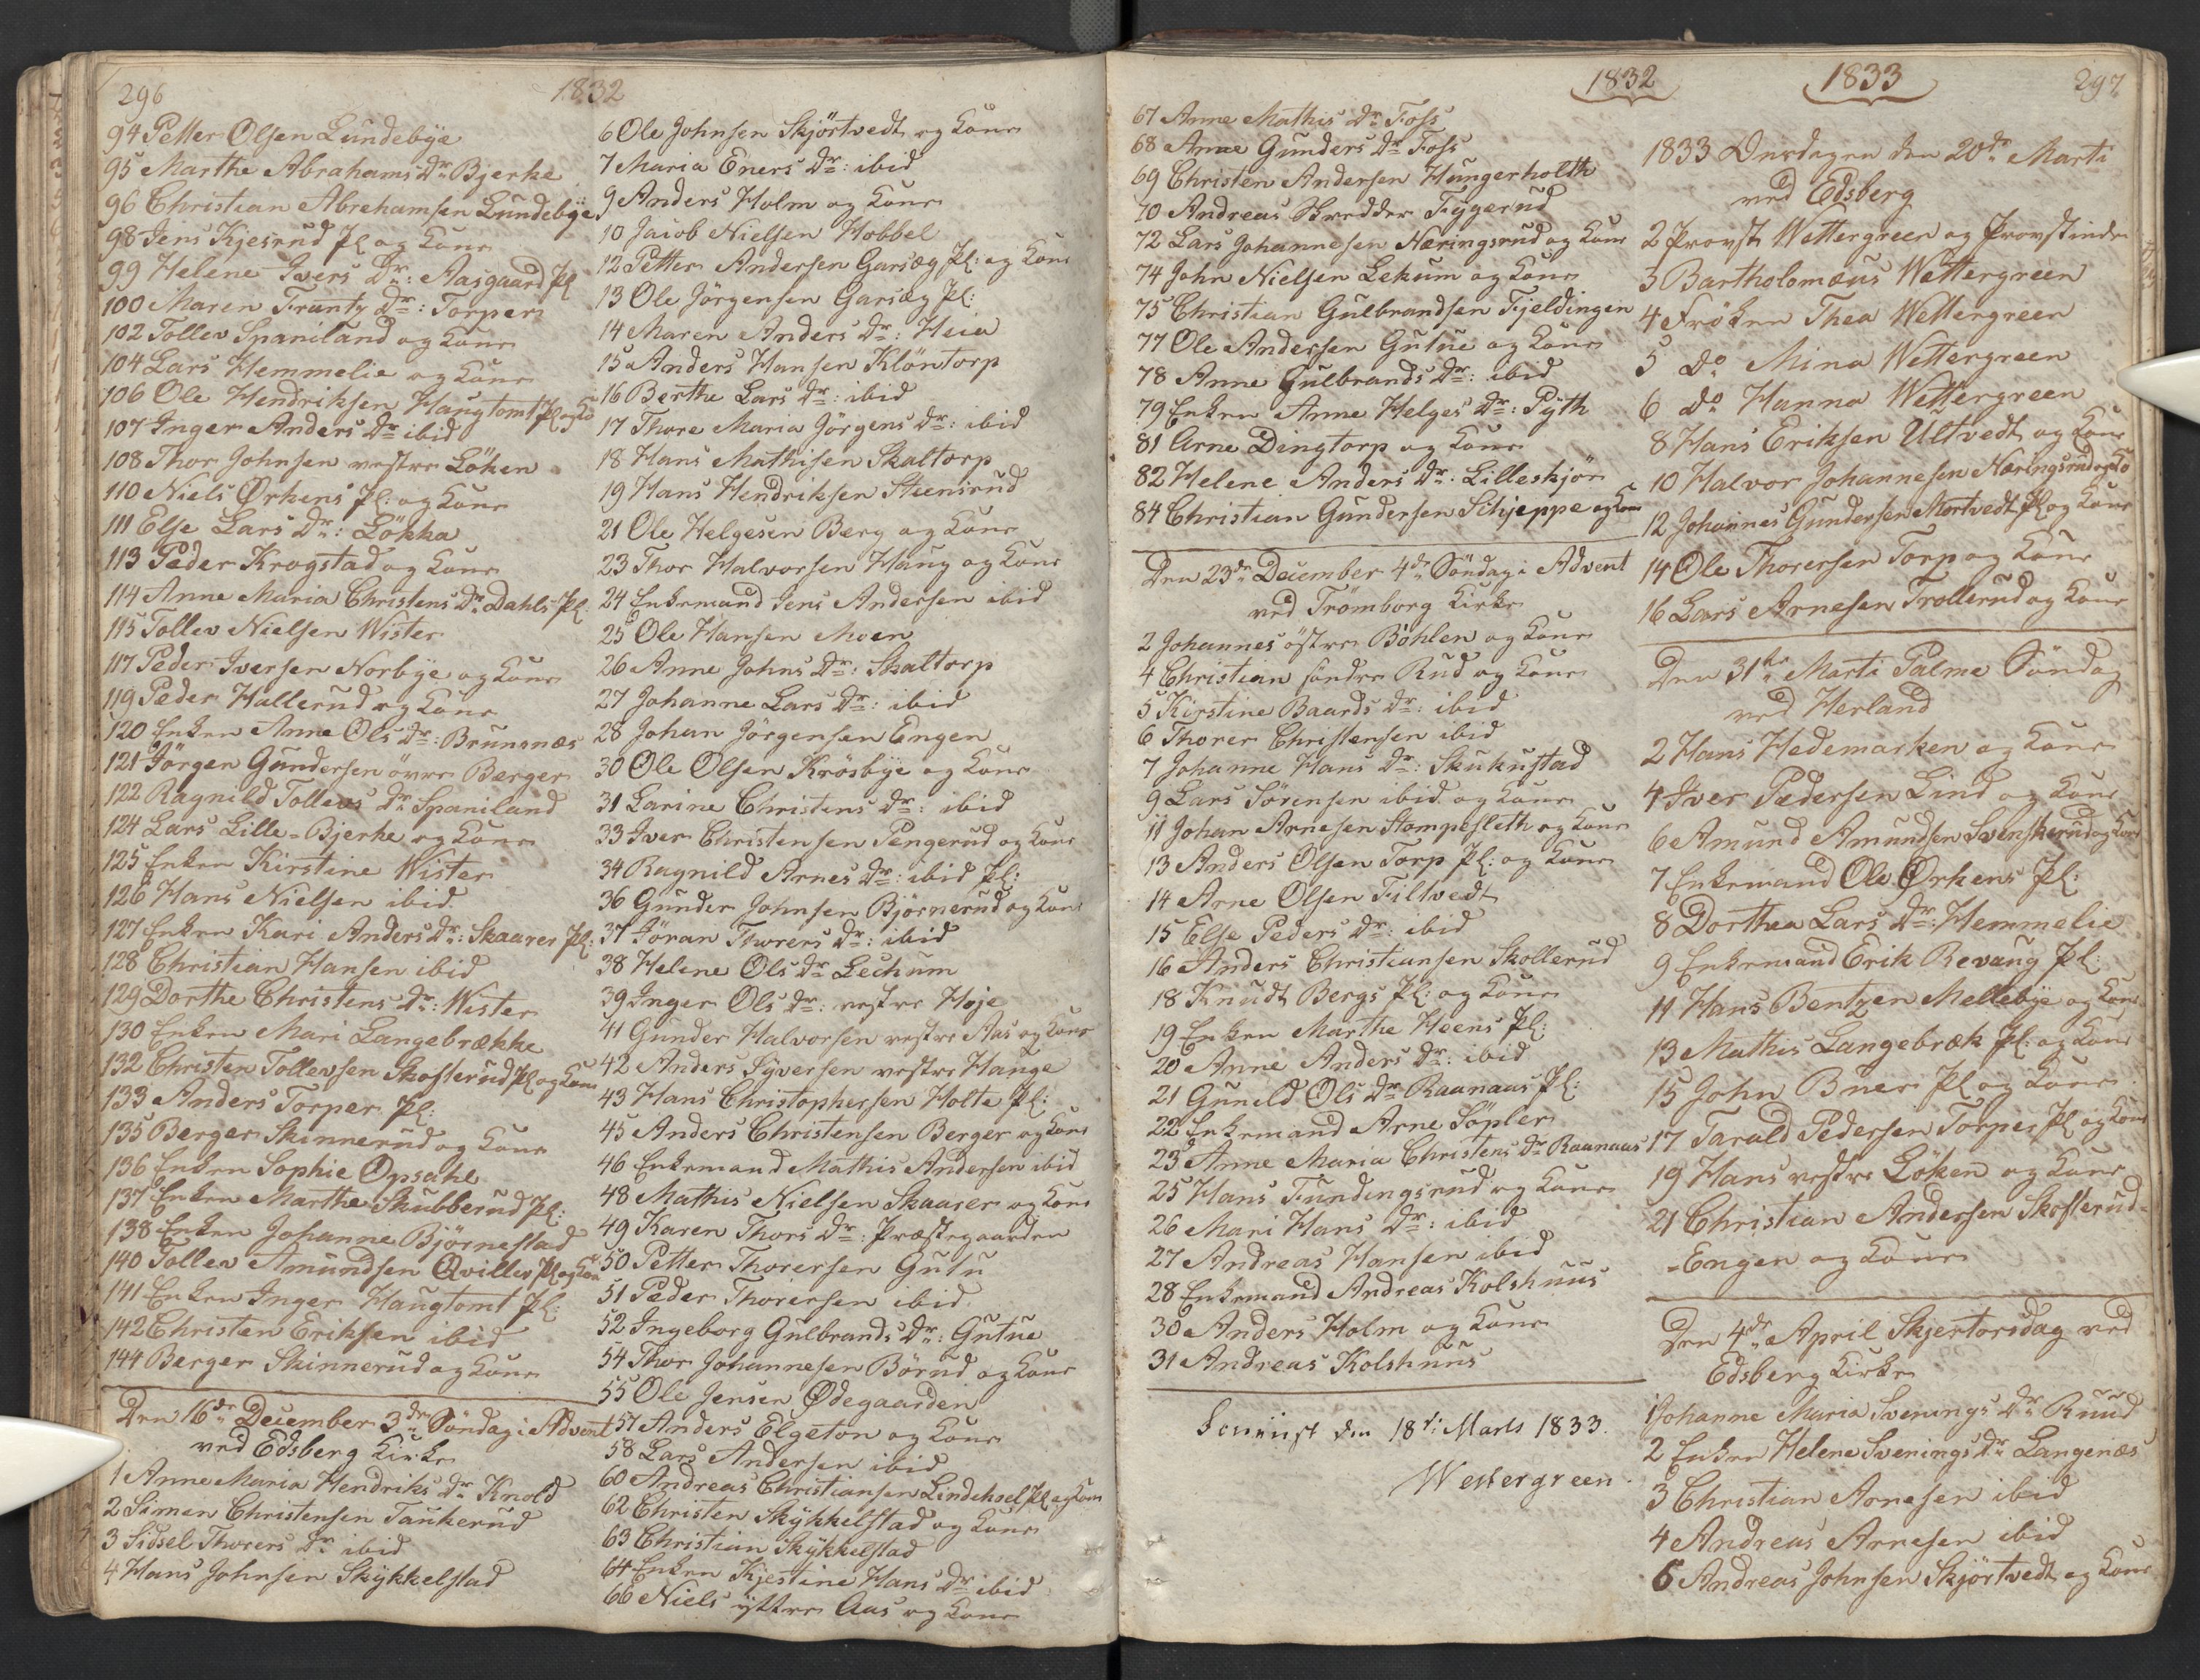 296
1832
94 Petter Olsen Lundebye
95 Marthe Abrahams Dr Bjerke
96 Christian Abrahamsen Lundebye
98 Jens Kjesrud Pl og Kone
99 Helene Ivers Dr: Aasgaard Pl
100 Maren Frantz Dr: Torper
102 Tollev Spaniland og Kone
104 Lars Hemmelie og Kone
106 Ole Hendriksen Haugtomt Pl og Ko
107 Inger Anders Dr ibid
108 Thor Johnsen vestre Löken
110 Niels Ørkens Pl: og Kone
111 Else Lars Dr: Lökka
113 Peder Krogstad og Kone
114 Anne Maria Christens Dr Dahls Pl
115 Tollev Nielsen Wister
117 Peder Iversen Norbye og Kone
119 Peder Hallerud og Kone
120 Enken Anne Ols Dr: Brunsnæs
121 Jörgen Gundersen övre Berger
122 Ragnild Tollevs Dr Spaniland
124 Lars Lille-Bjerke og Kone
125 Enken Kirstine Wister
126 Hans Nielsen ibid
127 Enken Kari Anders Dr: Skaarer Pl:
128 Christian Hansen ibid
129 Dorthe Christens Dr: Wister
130 Enken Mari Langebrække
132 Christen Tollevsen Skofterud Pl og Kone
133 Anders Torper Pl:
135 Berger Skinnerud og Kone
136 Enken Sophie Opsahl
137 Enken Marthe Skubberud Pl:
138 Enken Johanne Björnestad
140 Tollev Amundsen Qviller Pl og Kone
141 Enken Inger Haugtomt Pl:
142 Christen Eriksen ibid
144 Berger Skinnerud og Kone
Den 16de December 3de Söndag i Advent
ved Edsberg Kirke
1 Anne Maria Hendriks Dr Knold
2 Simen Christensen Taukerud
3 Sidsel Thorers Dr ibid
4 Hans Johnsen Skykkelstad
6 Ole Johnsen Skjörtvedt og Kone
7 Maria Eners Dr: ibid
9 Anders Holm og Kone
10 Jacob Nielsen Hobbel
12 Petter Andersen Garsæg Pl: og Kone
13 Ole Jörgensen Garsæg Pl:
14 Maren Anders Dr: Heia
15 Anders Hansen Klöntorp
16 Berthe Lars Dr: ibid
17 Thore Maria Jörgens Dr: ibid
18 Hans Mathisen Skaltorp
19 Hans Hendriksen Steensrud
21 Ole Helgesen Berg og Kone
23 Thor Halvorsen Haug og Kone
24 Enkemand Jens Andersen ibid
25 Ole Hansen Moen
26 Anne Johns Dr: Skaltorp
27 Johanne Lars Dr: ibid
28 Johan Jörgensen Engen
30 Ole Olsen Krösbye og Kone
31 Karine Christens Dr: ibid
33 Iver Christensen Pengerud og Kone
34 Ragnild Arnes Dr: ibid Pl:
36 Gunder Johnsen Björnerud og Kone
37 Jöran Thorers Dr: ibid
38 Helene Ols Dr Lechum
39 Inger Ols Dr: vestre Høje
41 Gunder Halvorsen vestre Aas og Kone
42 Anders Syversen vestre Hauge
43 Hans Christophersen Holte Pl:
45 Anders Christensen Berger og Kone
46 Enkemand Mathis Andersen ibid
48 Mathis Nielsen Skaarer og Kone
49 Karen Thors Dr: Præstegaarden
50 Petter Thorersen Gutu
51 Peder Thorersen ibid
52 Ingeborg Gulbrands Dr: Gutue
54 Thor Johannesen Börud og Kone
55 Ole Jensen Ødegaarden
57 Anders Elgeton og Kone
58 Lars Andersen ibid
60 Andreas Christiansen Lindehoel Pl og Kone
62 Christen Skykkelstad og Kone
63 Christian Skykkelstad
64 Enken Kjestine Hans Dr ibid
66 Niels yttre Aas og Kone
1832
1833
297
67 Anne Mathis Dr Foss
68 Anne Gunders Dr Foss
69 Christen Andersen Hungerholth
70 Andreas Skredder Fygerud
72 Lars Johannesen Næringsrud og Kone
74 John Nielsen Lekum og Kone
75 Christian Gulbrandsen Fjeldingen
77 Ole Andersen Gutue og Kone
78 Anne Gulbrands Dr: ibid
79 Enken Anne Helges Dr: Pyth
81 Arne Dingtorp og Kone
82 Helene Anders Dr: Lilleskjör
84 Christian Gundersen Schjeppe og Kone
Den 23de December 4de Söndag i Advent
ved Trömborg Kirke
2 Johannes östre Böhlen og Kone
4 Christian söndre Rud og Kone
5 Kirstine Baards Dr: ibid
6 Thorer Christensen ibid
7 Johanne Hans Dr: Skukustad
9 Lars Sörensen ibid og Kone
11 Johan Arnesen Stompesleth og Kone
13 Anders Olsen Torp Pl: og Kone
14 Arne Olsen Filtvedt
15 Else Peders Dr: ibid
16 Anders Christiansen Skollerud
18 Knudt Bergs Pl: og Kone
19 Enken Marthe Heens Pl:
20 Anne Anders Dr: ibid
21 Gunild Ols Dr Raanaas Pl:
22 Enkemand Arne Söpler
23 Anne Maria Christens Dr Raanaas
25 Hans Fundingsrud og Kone
26 Mari Hans Dr: ibid
27 Andreas Hansen ibid
28 Enkemand Andreas Kolshuus
30 Anders Holm og Kone
31 Andreas Kolshuus
den 18de Marts 1833.
Wettergreen.
1833 Onsdagen den 20de Marti
ved Edsberg
2 Provst Wettergreen og Provstinde
3 Bartholomæus Wettergreen
4 Fröken Thea Wettergreen
5 do Mina Wettergreen
6 do Hanna Wettergreen
8 Hans Eriksen Ultvedt og Kone
10 Halvor Johannesen Næringsrud og Ko
12 Johannes Gundersen Mortvedt Pl og Kone
14 Ole Thorersen Torp og Kone
16 Lars Arnesen Trollerud og Kone
Den 31te Marti Palme Söndag
ved Herland
2 Hans Hedemarken og Kone
4 Iver Pedersen Lind og Kone
6 Amund Amundsen Svenskerud og Kone
7 Enkemand Ole Ørkens Pl:
8 Dorthea Lars Dr: Hemmelie
9 Enkemand Erik Revaug Pl:
11 Hans Bentzen Mellebye og Kone
13 Mathis Langebræk Pl: og Kone
15 John Buer Pl og Kone
17 Tarald Pedersen Torper Pl og Kone
19 Hans vestre Löken og Kone
21 Christian Andersen Skofterud-
-Engen og Kone
Den 4de April Skjertorsdag ved
Edsberg Kirke
1 Johanne Maria Svenings Dr Ruud
2 Enken Helene Svenings Dr Langenæs
3 Christian Arnesen ibid
4 Andreas Arnesen ibid
6 Andreas Johnsen Skjörtvedt og Kone